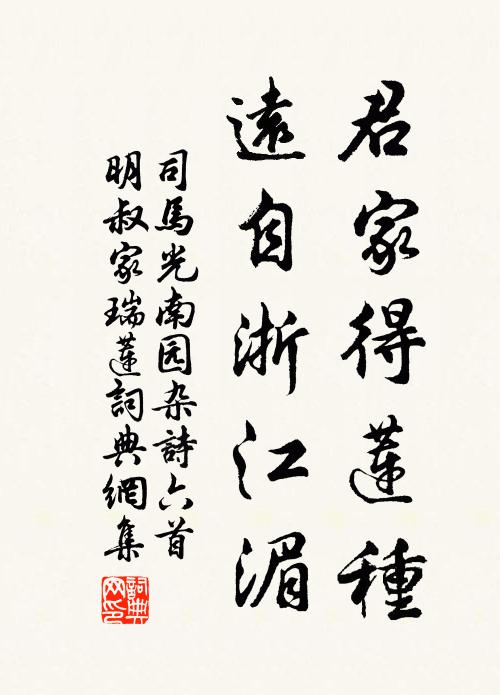 君家得蓮種
遠自浙江湄
司馬光南园杂詩六首
明叔家瑞蓮詞典網集
詞典网印